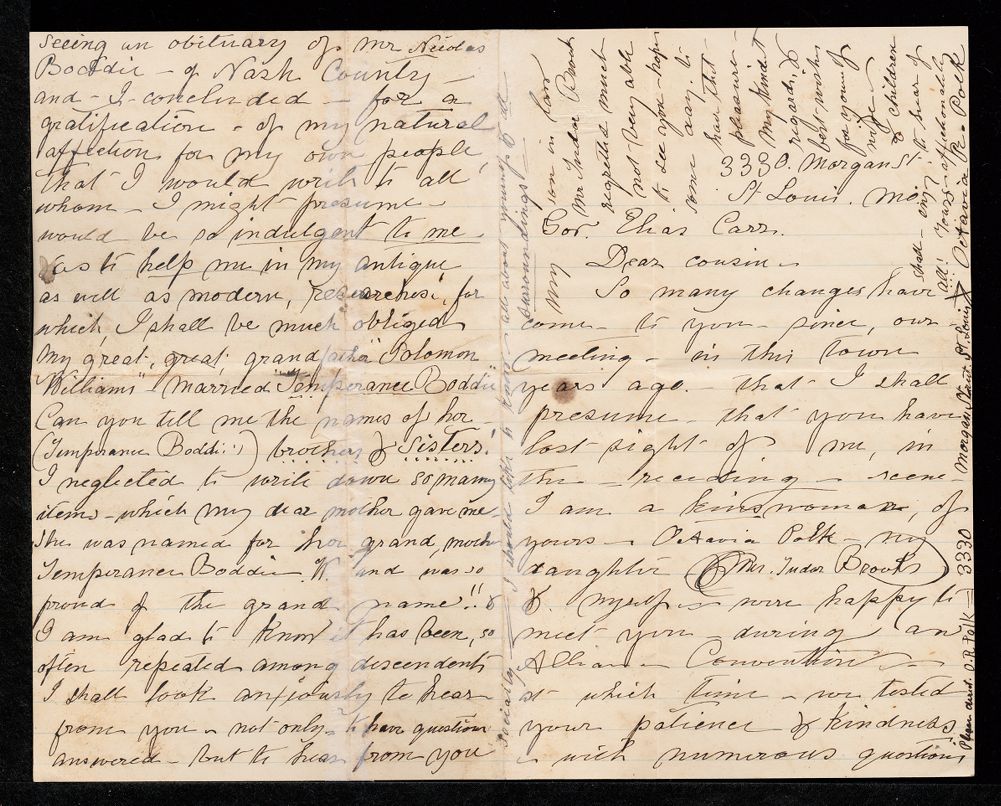 3330. Morgan St.
St Louis. Mo.
Gov. Elias Carr.
Dear cousin -
So many changes have
come - to you - since, our
meeting - in this town
years ago. that - I shall
presume - that you have
lost sight of me, in
the - receeding - scene -
I am a kinswoman, of
yours - Octavia Polk - my
daughter (Mrs. Tudor Brooks)
& myself - were happy to
meet you during an
Alliance Convention -
at which time we tested
your patience & kindness,
- with numerous questions
seeing an obituary of Mr Nicolas
Boddie - of Nash County -
and - I - concluded - for a
gratification - of my natural
affection for my own people,
that I would write to all
whom - I might presume -
would be so indulgent to me -
as to help me in my antique
as well as modern, researches, for
which, I shall be much obliged
My great, great, grand father "Solomon
Williams" married Temperance Boddie
Can you tell me the names of her
(Temperance Boddie's) brothers & sisters.
I neglected to write down so many
items - which my dear mother gave me.
She was named for her grand mother
Temperance Boddie W. and was so
proud of the grand name"!! &
I am glad to know it has been, so
often repeated among descendents
I shall look anxiously to hear
from you - not only to have question
answered - but to hear from you
socially - I should like to know all about your
surroundings
My son in law
Mr Tudor Brooks
regretted much
not being able
to see you - hope
some day to
have that
pleasure -
My kind
regards, &
best wishes
for yourself
wife -
& children
Shall - enjoy to hear of
all! Yours affectionately
Octavia R. Polk
Please direct. O. R. Polk = 3330 Morgan Street. St. Louis